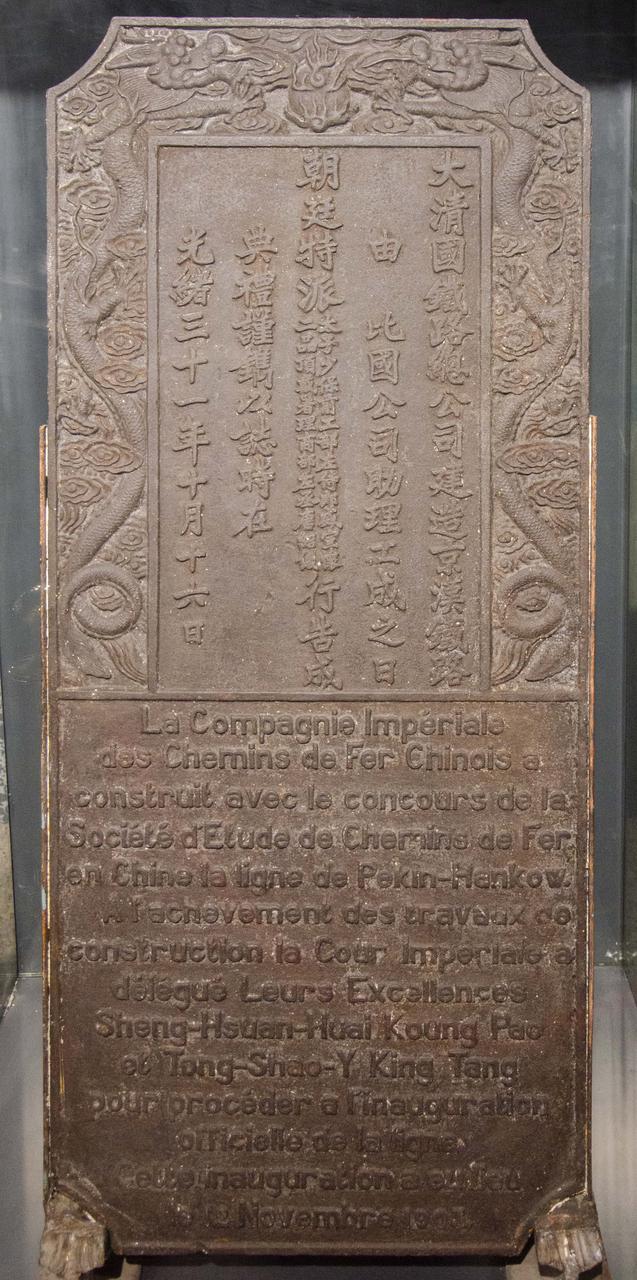 大清國鐵路總公司建造京漢鐵路
由 比國公司助理工成之日
朝廷特派
太子少保前工部左侍郎盛宣懷
二品頂戴署理商部左丞唐紹儀
行告成
典禮謹鐫以誌時在
光緒三十一年十月十六日
La Compagnie Impériale
des Chemins de Fer Chinois a
construit avec le concours de la
Société d'Etude de Chemins de Fer
en Chine la ligne de Pekin-Hankow.
A l'achèvement des travaux de
construction la Cour Impériale a
délégué Leurs Excellences
Sheng-Hsuan-Huai Koung Pao
et Tong-Shao-Y King Tang
pour procéder a l'inauguration
officielle de la ligne
Cette inauguration a eu lieu
le 12 Novembre 1905.